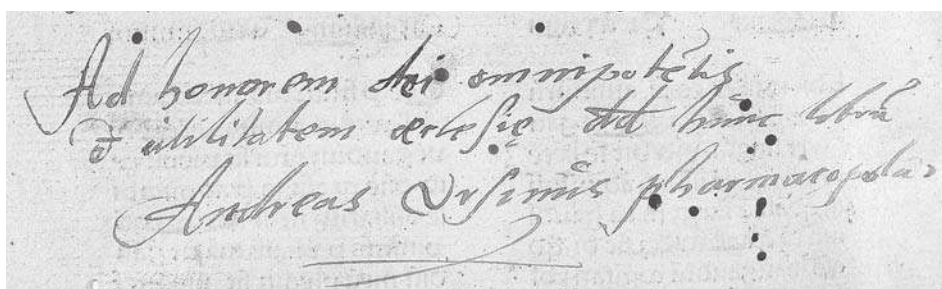 Ad honorem dei omnipotētis
& utilitatem ecclesię dd hunc librū
Andreas Ursinus pharmacopola.